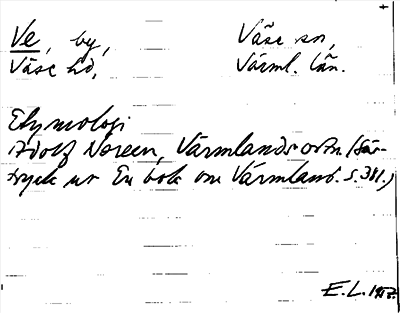 Ve, by, Väse sn,
Väse hd, Värml. län.
Etymologi
Adolf Noreen, Värmlands ortn. (Sär-
tryck ur En bok om Värmland. s. 381.)
E. L. 1917.